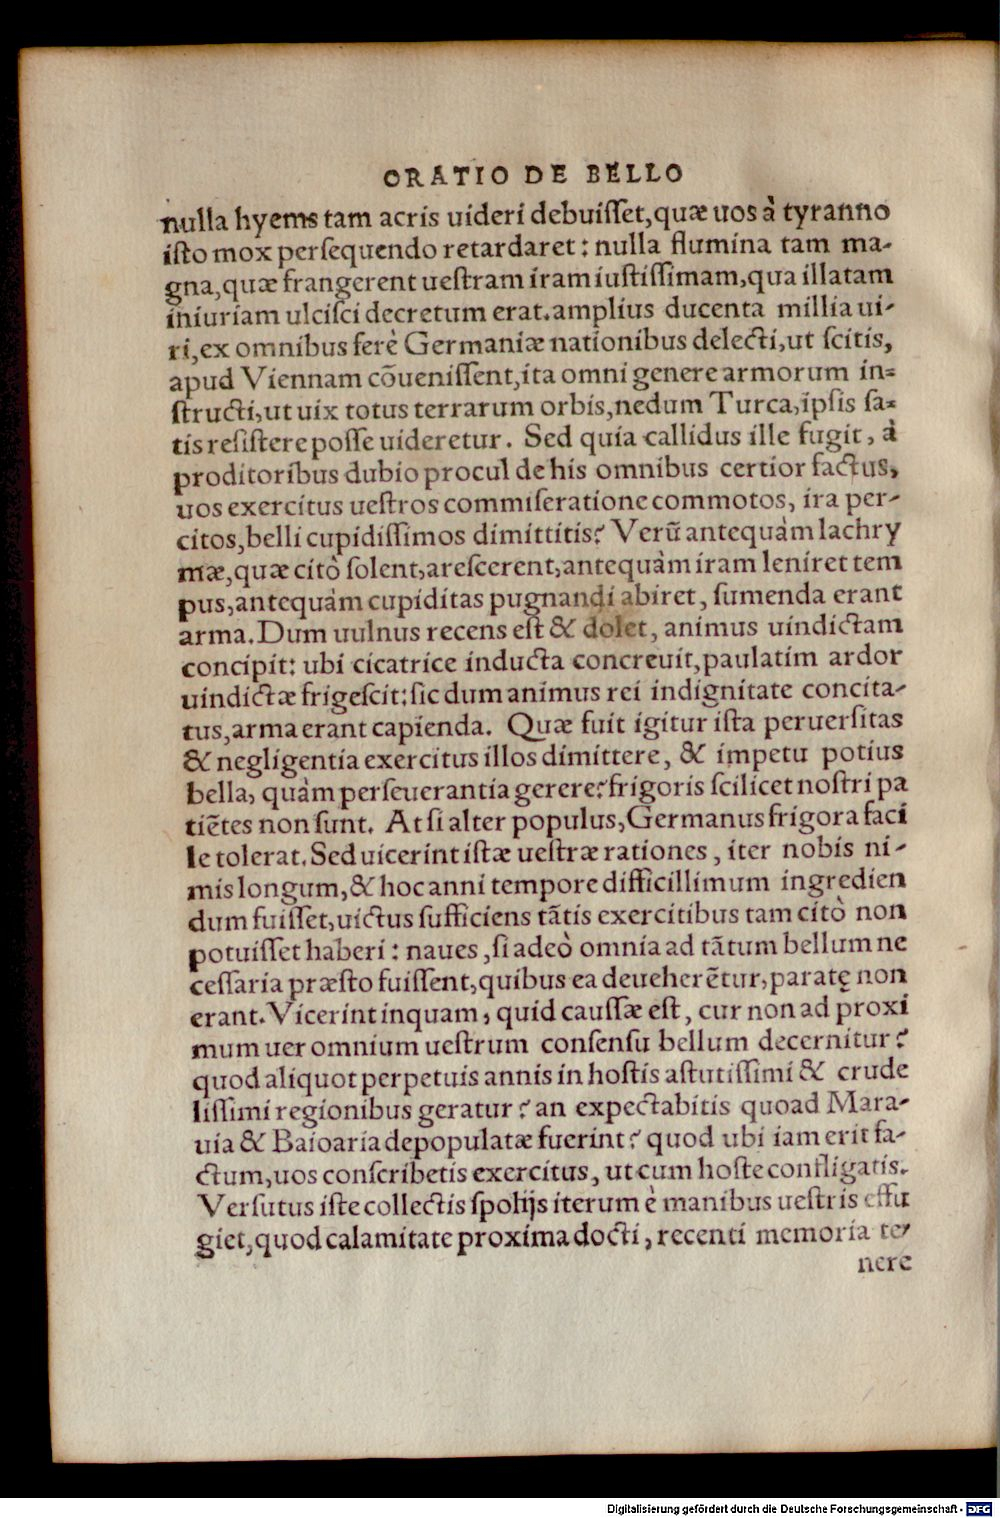 ORATIO DE BELLO
nulla hyems tam acris uideri debuiſſet,quæ uos à tyranno
iſto mox perſequendo retardaret : nulla flumina tam ma-
gna,quæ frangerent ueſtram iram iuſtiſſimam,qua illatam
iniuriam ulciſci decretum erat.amplius ducenta millia ui-
ri,ex omnibus ferè Germaniæ nationibus delecti,ut ſcitis,
apud Viennam cōueniſſent,ita omni genere armorum in=
ſtructi,ut uix totus terrarum orbis,nedum Turca,ipſis ſa=
tis reſiſtere poſſe uideretur. Sed quia callidus ille fugit, à
proditoribus dubio procul de his omnibus certior factus,
uos exercitus ueſtros commiſeratione commotos, ira per-
citos,belli cupidiſſimos dimittitis? Verū antequàm lachry
mæ,quæ citò ſolent,areſcerent,antequàm iram leniret tem
pus,antequàm cupiditas pugnandi abiret, ſumenda erant
arma.Dum uulnus recens eſt & dolet, animus uindictam
concipit: ubi cicatrice inducta concreuit,paulatim ardor
uindictæ frigeſcit:ſic dum animus rei indignitate concita-
tus,arma erant capienda. Quæ fuit igitur iſta peruerſitas
& negligentia exercitus illos dimittere, & impetu potius
bella, quàm perſeuerantia gerere?frigoris ſcilicet noſtri pa
tiētes non ſunt. At ſi alter populus,Germanus frigora faci
le tolerat.Sed uicerint iſtæ ueſtræ rationes, iter nobis ni-
mis longum,& hoc anni tempore difficillimum ingredien
dum fuiſſet,uictus ſufficiens tātis exercitibus tam citò non
potuiſſet haberi : naues ,ſi adeò omnia ad tātum bellum ne
ceſſaria præſto fuiſſent,quibus ea deueherētur,paratę non
erant.Vicerint inquam, quid cauſſæ eſt, cur non ad proxi
mum uer omnium ueſtrum conſenſu bellum decernitur?
quod aliquot perpetuis annis in hoſtis aſtutiſſimi & crude
liſſimi regionibus geratur? an expectabitis quoad Mara-
uia & Baioaria depopulatæ fuerint? quod ubi iam erit fa-
ctum,uos conſcribetis exercitus, ut cum hoſte confligatis.
Verſutus iſte collectis ſpolijs iterum è manibus ueſtris effu
giet,quod calamitate proxima docti, recenti memoria te-
nere
Digitalisierung gefördert durch die Deutsche Forschungsgemeinschaft - DFG